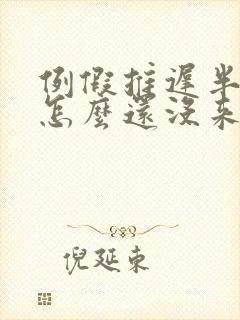 例假推遲半
怎麼還沒來
倪延東